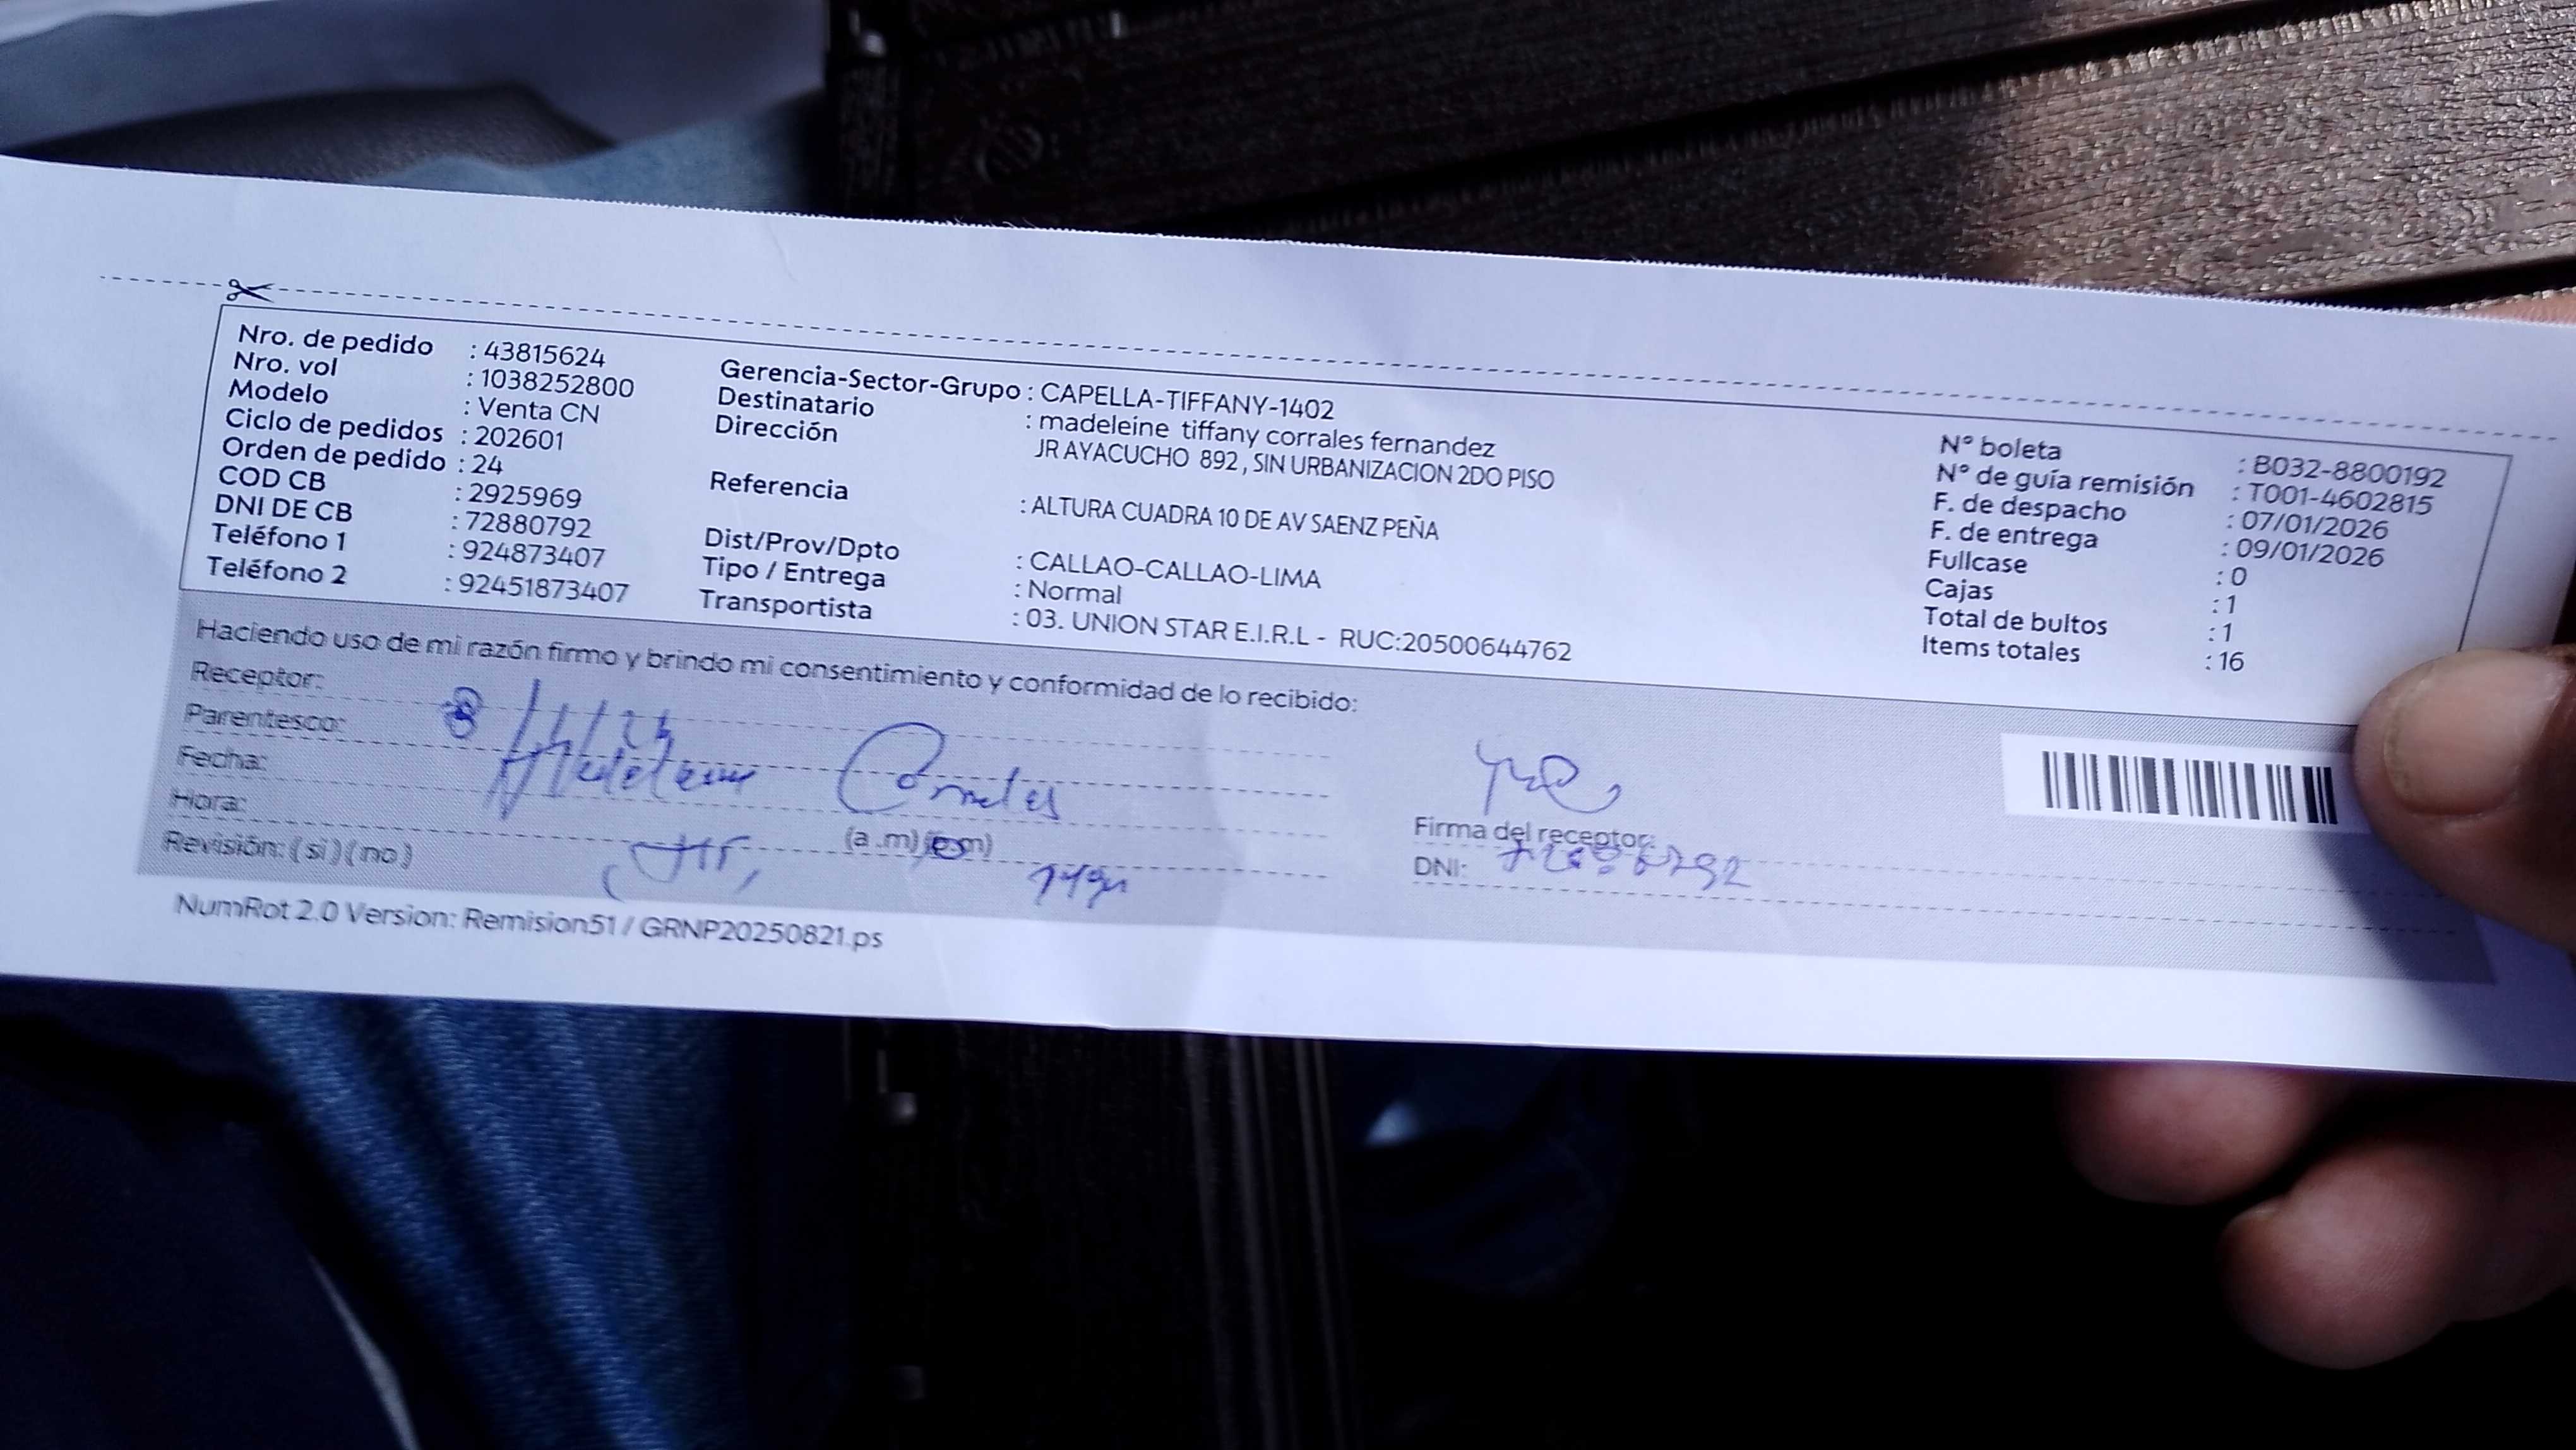 Nro. de pedido : 43815624
Nro. vol : 1038252800
Modelo : Venta CN
Ciclo de pedidos : 202601
Orden de pedido : 24
COD CB : 2925969
DNI DE CB : 72880792
Teléfono 1 : 924873407
Teléfono 2 : 92451873407
Gerencia-Sector-Grupo : CAPELLA-TIFFANY-1402
Destinatario : madeleine tiffany corrales fernandez
Dirección JR AYACUCHO 892, SIN URBANIZACION 2DO PISO
Referencia : ALTURA CUADRA 10 DE AV SAENZ PEÑA
Dist/Prov/Dpto : CALLAO-CALLAO-LIMA
Tipo / Entrega : Normal
Transportista : 03. UNION STAR E.I.R.L - RUC:20500644762
N° boleta : B032-8800192
N° de guía remisión : T001-4602815
F. de despacho : 07/01/2026
F. de entrega : 09/01/2026
Fullcase : 0
Cajas : 1
Total de bultos : 1
Items totales : 16
Haciendo uso de mi razón firmo y brindo mi consentimiento y conformidad de lo recibido:
Receptor:
Parentesco:
Fecha: Corrales
Hora: (a .m)
Revisión: ( si ) ( no )
Firma del receptor:
DNI:
NumRot 2.0 Version: Remision51 / GRNP20250821.ps